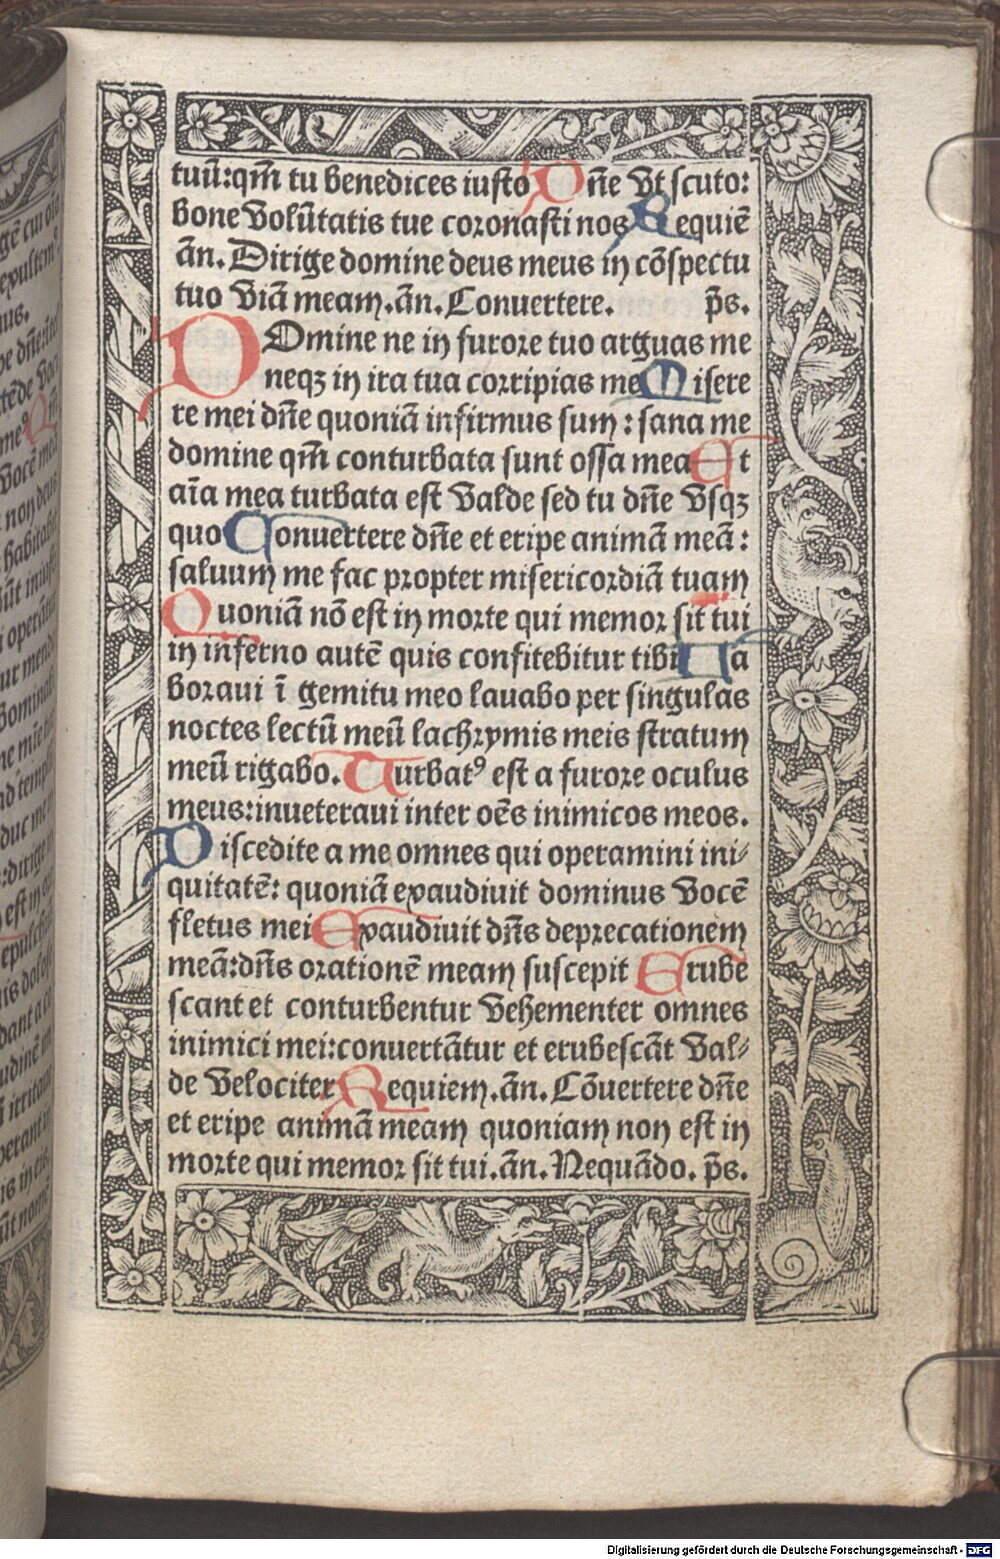 tuū:qm̄ tu benedices iusto Dn̄e vt scuto:
bone volūtatis tue coronasti nos Requiē
ān. Dirige domine deus meus in cōspectu
tuo viā meam. ān. Conuertere. p̄s.
DOmine ne in furore tuo arguas me
neqꝫ in ira tua corripias me Misere
re mei dn̄e quoniā infirmus sum: sana me
domine qm̄ conturbata sunt ossa mea Et
aīa mea turbata est valde sed tu dn̄e vsqꝫ
quo Conuertere dn̄e et eripe animā meā:
saluum me fac propter misericordiā tuam
Quoniā nō est in morte qui memor sit tui
in inferno autē quis confitebitur tibi La
boraui ī gemitu meo lauabo per singulas
noctes lectū meū lachrymis meis stratum
meū rigabo. Turbatꝰ est a furore oculus
meus: inueteraui inter oēs inimicos meos.
Discedite a me omnes qui operamini ini⸗
quitatē: quoniā exaudiuit dominus vocē
fletus mei Exaudiuit dn̄s deprecationem
meā: dn̄s orationē meam suscepit Erube
scant et conturbentur vehementer omnes
inimici mei: conuertātur et erubescāt val⸗
de velociter Requiem. ān. Cōuertere dn̄e
et eripe animā meam quoniam non est in
morte qui memor sit tui. ān. Nequādo. p̄s.
Digitalisierung gefördert durch die Deutsche Forschungsgemeinschaft - DFG